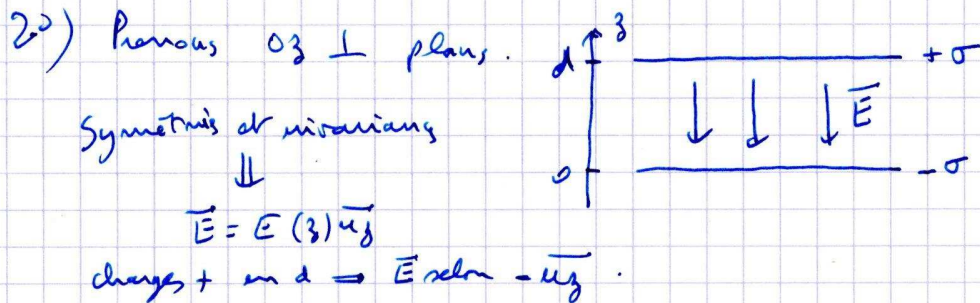 2°) Prenons Oz ⊥ plans.
z
d
+σ
E⃗
0
-σ
Symétries et invariances
⇓
E⃗ = E(z) u⃗z
charges + en d ⇒ E⃗ selon - u⃗z.